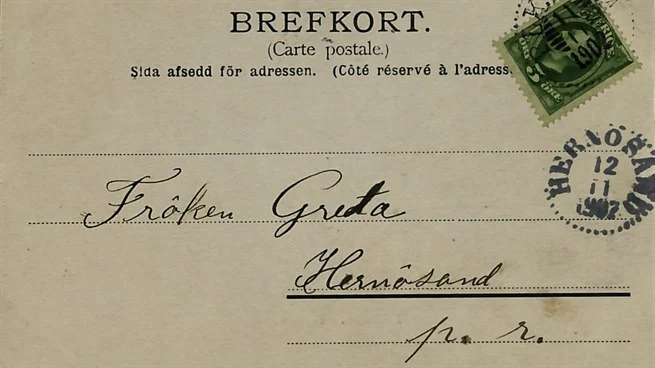 BREFKORT.
(Carte postale.)
Sida afsedd för adressen. (Côté réservé à l'adress
5 ÖRE
HERNÖSAND
12
11
1902
Fröken Greta
Hernösand
p. r.